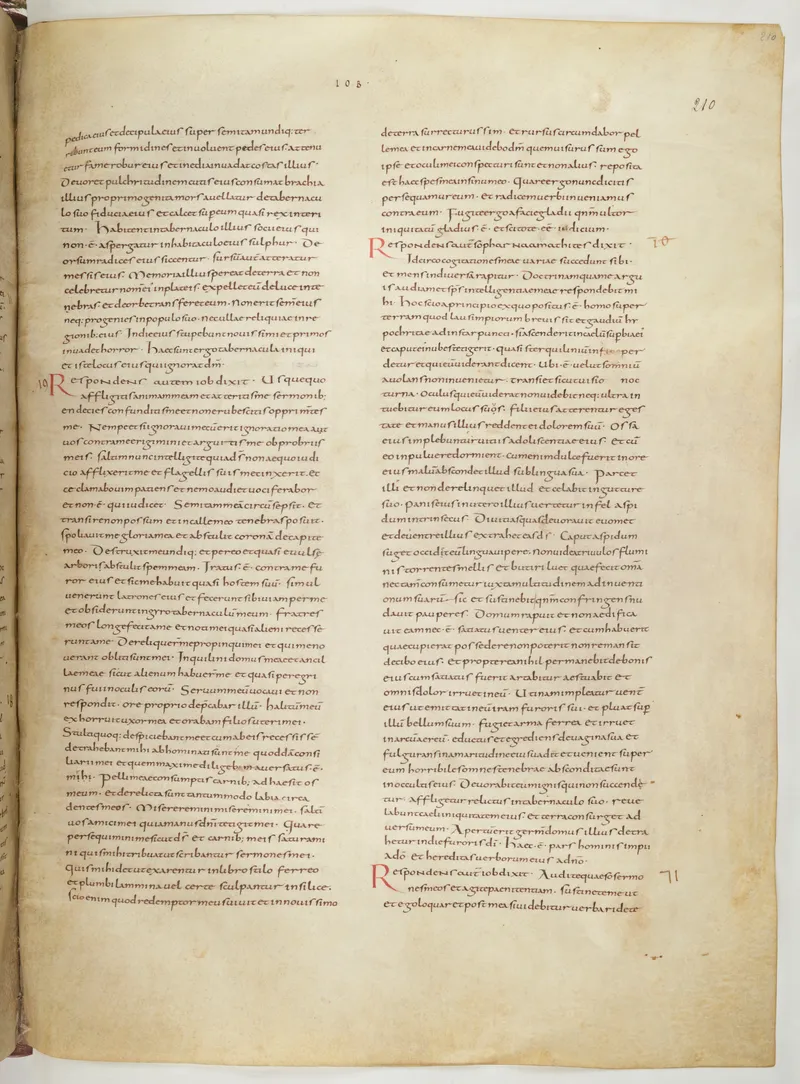 IOB
210
pedica eius et decipula eius super semitam undiq: ter
ribunt eum formidines et inuoluent pedes eius attenu
etur fame robur eius et inedia inuadat costas illius·
Deuoret pulchritudinem cutis eius consumat brachia
illius primogenita mors auellatur de tabernacu
lo suo fiducia eius et calcet super eum quasi rex interi
tum· Habitent in tabernaculo illius socii eius qui
non·ē· aspergatur in habitaculo eius sulphur· De
orsum radices eius siccentur· sursū aut̄ atteratur
messis eius· Memoria illius pereat de terra et non
celebretur nomen eius in plateis expellet eū de luce in te
nebras et de orbe transferet eum· Non erit semen eius
neq: progenies in populo suo· nec ullae reliquiae in re
gionib: eius· In die eius stupebunt nouissimi et primos
inuadet horror· Haec sunt ergo tabernacula iniqui
et iste locus eius qui ignorat dm̄·
Respondens autem iob dixit· Usquequo
affligitis animam meam et atteritis me sermonib:
en decies confunditis me et non erubescitis opprimentes
me· Nempe et si ignoraui mecū erit ignorantia mea aut
uos contra me erigimini et arguitis me obprobriis
meis· saltim nunc intellegite quia ds̄ non aequo iudi
cio afflixerit me et flagellis suis me cinxerit· et
ce clamabo uim patiens et nemo audiet uociferabor
et non·ē· qui iudicet· Semitam meā circūsepsit· et
transire non possum et in calle meo tenebras posuit·
spoliauit me gloria mea et abstulit coronā de capite
meo· Destruxit me undiq: et pereo et quasi euulse
arbori abstulit spem meam· Iratus·ē· contra me fu
ror eius et sic me habuit quasi hostem suū· simul
uenerunt latrones eius et fecerunt sibi uiam per me
et obsiderunt in gyro tabernaculū meum· fratres
meos longe fecit a me· et noti mei quasi alieni recesse
runt a me· Dereliquer̄ me propinqui mei et qui me no
uerant obliti sunt mei· Inquilini domus meae et ancil
lae meae sicut alienum habuer̄ me et quasi peregri
nus fui in oculis eorū· Seruum meū uocaui et non
respondit· ore proprio depcabar illū· halitū meū
exhorruit uxor mea et orabam filios uteri mei·
Stulti quoq: despiciebant me et cum ab eis recessisse
detrahebant mihi abhominati sunt me quoddā consi
liarii mei et quem maxime diligebam auersatus·ē·
mihi· Pelli meae consumptis carnib: adhaesit os
meum· et derelicta sunt tantummodo labia circa
dentes meos· Miseremini miseremini mei· saltē
uos amici mei quia manus dn̄i tetigit me· Quare
persequimini me sicut ds̄· et carnib: meis saturami
ni quis mihi tribuat ut scribantur sermones mei·
quis mihi det ut exarentur in libro stilo ferreo
et plumbi lammina uel certe sculpantur in silice·
Scio enim quod redemptor meus uiuit et in nouissimo
de terra surrecturus sim· et rursus circumdabor pel
le mea et in carne mea uidebo dm̄ quem uisurus sum ego
ipse et oculi mei conspecturi sunt et non alius· reposita
est haec spes mea in sinu meo· Quare ergo nunc dicitis
persequamur eum· et radicem uerbi inueniamus
contra eum· Fugite ergo a facie gladii qnm̄ ultor
iniquitatū gladius·ē· et scitote eē iudicium·
Respondens aut̄ sophar naamathites dixit·
Idcirco cogitationes meae uariae succedunt sibi·
et mens in diuersa rapitur· Doctrinam qua me argu
is audiam et sp̄s intellegentiae meae respondebit mi
hi· Hoc scio a principio ex quo positus·ē· homo super
terram quod laus impiorum breuis sit et gaudiū hy
pochritae ad instar puncti· si ascenderit in caelū supbia ei
et caput eius nubes tetigerit· quasi sterquilinium in fine per
detur et qui eū uiderant dicent· Ubi·ē· uelut somniū
auolans non inuenietur· transiet sicut uisio noc
turna· Oculus qui eū uiderat non uidebit neq: ultra in
tuebitur eum locus suus· filii eius atterentur eges
tate et manus illius reddent ei dolorem suū· Ossa
eius implebuntur uitiis adolescentiae eius· et cū
eo in puluere dormient· cum enim dulce fuerit in ore
eius malū abscondet illud sub lingua sua· Parcet
illi et non derelinquet illud et celabit in gutture
suo· panis eius in utero illius uertetur in fel aspi
dum intrinsecus· Diuitias quas deuorauit euomet
et de uentre illius extrahet eas ds̄· Caput aspidum
suget occidet eū lingua uipere· non uideat riuulos flumi
nis torrentes mellis et butiri luet quae fecit omā
nec tam̄ consumetur iuxta multitudinem adinuenti
onum suarū· sic et sustinebit qnm̄ confringens nu
dauit pauperes· Domum rapuit et non aedifica
uit eam nec·ē· satiatus uenter eius· et cum habuerit
quae cupierat possedere non poterit non remansit
de cibo eius· et propterea nihil permanebit de bonis
eius cum satiatus fuerit artabitur aestuabit et
omnis dolor irruet in eū· Utinam impleatur uent̄
eius ut emittat in eū iram furoris sui· et pluat sup
illū bellum suum· fugiet arma ferrea et irruet
in arcū aereū· eductus et egrediens de uagina sua et
fulgurans in amaritudine sua uadet et uenient super
eum horribiles omnes tenebrae absconditae sunt
in occultis eius· Deuorabit eū ignis qui non succende
tur· affligetur relictus in tabernaculo suo· reue
labunt caeli iniquitatem eius et terra consurget ad
uersum eum· Apertū erit germ̄ domus illius detra
hetur in die furoris dī· Haec·ē· pars hominis impii
a dō· et hereditas uerborum eius a dnō·
Respondens aut̄ iob dixit· Audite quaeso sermo
nes meos et agite paenitentiam· sustinete me ut
et ego loquar et post mea si uidebitur uerba ridete